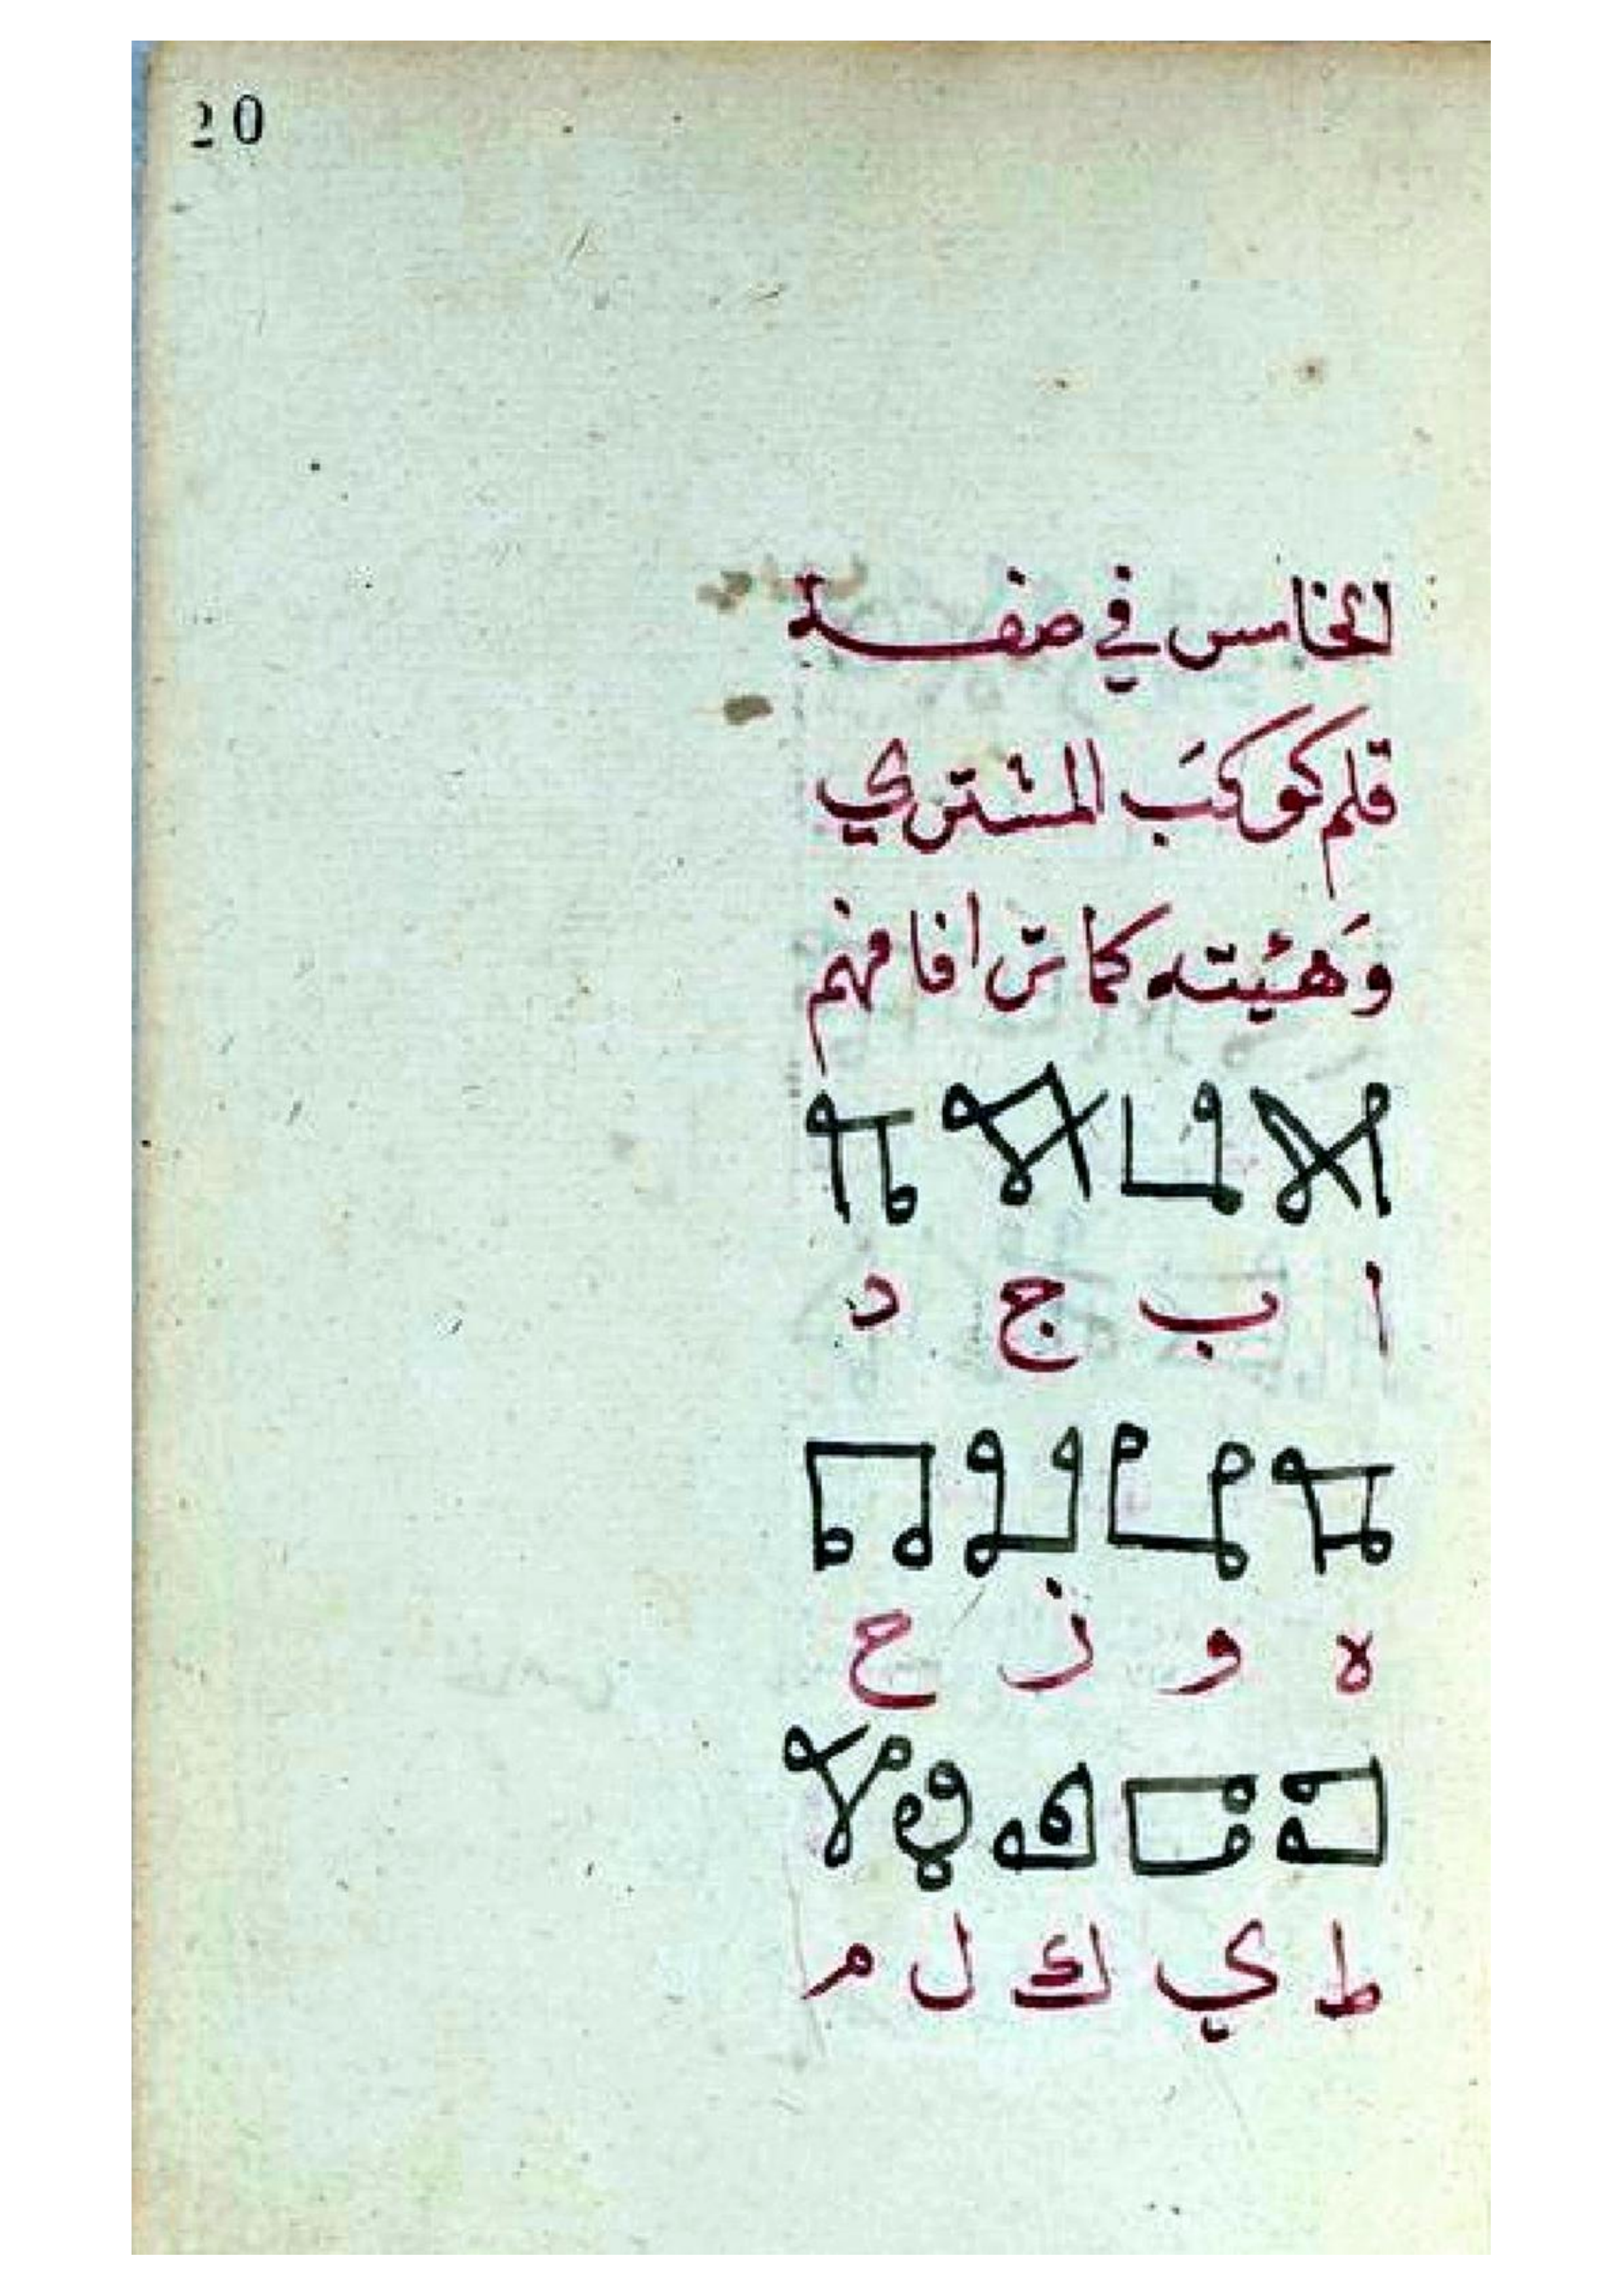 20
الخامس في صفة
قلم كوكَب المشتري
وَهيئته كما ترا فافهم
ا ب ج د
ه و ز ح
ط ي ك ل م